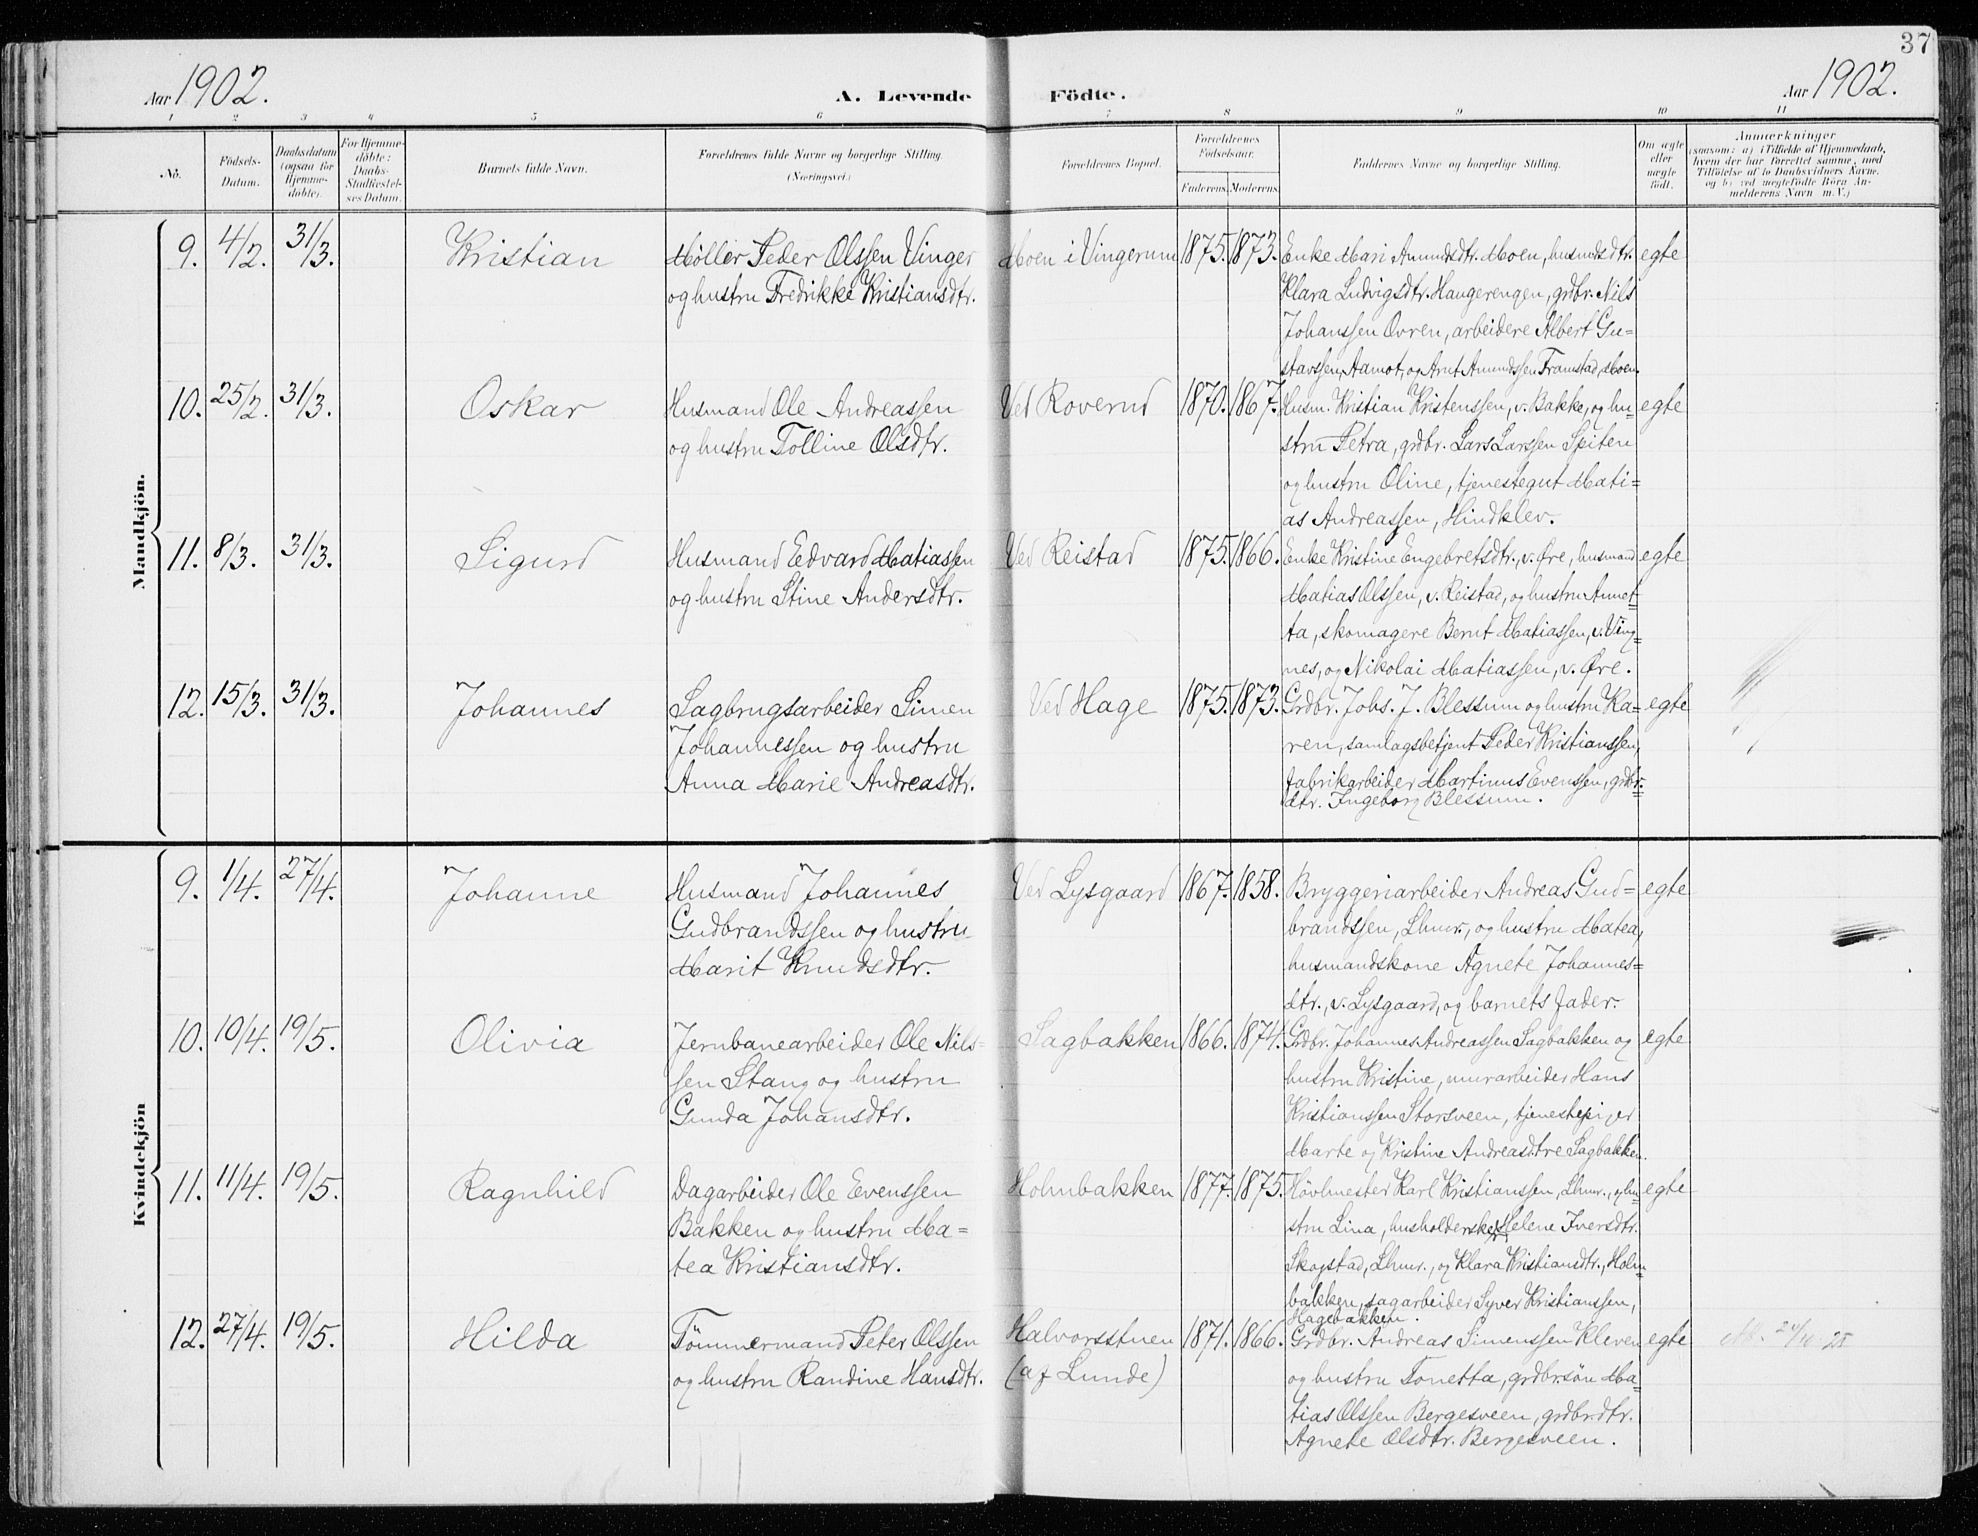 37
Aar 1902. A. Levende Födte. Aar 1902.
1 2 3 4 5 6 7 8 9 10 11
No. Födsels-Datum. Daabsdatum (ogsaa for Hjemme-döbte). For Hjemme-döbte: Daabs-Stadfæstel-ses Datum. Barnets fulde Navn. Forældrenes fulde Navne og borgerlige Stilling. (Næringsvei.) Forældrenes Bopæl. Forældrenes Födselsaar. Faderens. Moderens. Faddernes Navne og borgerlige Stilling. Om ægte eller uægte födt. Anmærkninger (saasom: a) i Tilfælde af Hjemmedaab, hvem der har forrettet samme, med Tilföielse af to Daabsvidners Navne, og b) ved uægtefödte Börn An-melderens Navn m. V.)
Mandkjön.
9. 4/2. 31/3. Kristian
Møller Peder Olssen Vinger
og hustru Fredrikke Kristiansdtr.
Moen i Vingerum 1875. 1873.
Enke Mari Amundsdtr. Moen, husmdsdtr.
Klara Ludvigsdtr. Haugerengen, grdbr. Nils
Johanssen Ovren, arbeidere Albert Gu=
stavssen, Aamot, og Arnt Amundssen Framstad, Moen.
egte
10. 25/2. 31/3. Oskar
Husmand Ole Andreassen
og hustru Tolline Olsdtr.
Ved Roverud 1870. 1867.
Husm. Kristian Kristenssen, v. Bakke, og hu=
stru Petra, grdbr. Lars Larssen Spiten
og hustru Oline, tjenestegut Mati=
as Andreassen, Hindklev.
egte
11. 8/3. 31/3. Sigurd
Husmand Edvard Matiassen
og hustru Stine Andersdtr.
Ved Reistad 1875. 1866.
Enke Kristine Engebretsdtr., v. Øre, husmand
Matias Olssen, v. Reistad, og hustru Annet=
ta, skomagere Bernt Matiassen, v. Ving=
nes, og Nikolai Matiassen, v. Øre.
egte
12. 15/3. 31/3. Johannes
Sagbrugsarbeider Simen
Johannessen og hustru
Anna Marie Andreasdtr.
Ved Hage 1875. 1873.
Grdbr. Johs. J. Blessum og hustru Ka=
ren, samlagsbetjent Peder Kristianssen,
fabrikarbeider Martinus Evenssen, grdbr.=
dtr. Ingeborg Blessum.
egte
Kvindekjön
9. 1/4. 27/4. Johanne
Husmand Johannes
Gudbrandssen og hustru
Marit Knudsdtr.
Ved Lysgaard 1867. 1858.
Bryggeriarbeider Andreas Gud=
brandssen, Lhmr., og hustru Matea,
husmandskone Agnete Johannes=
dtr., v. Lysgaard, og barnets fader.
egte
10. 10/4. 19/5. Olivia
Jernbanearbeider Ole Nils=
sen Stang og hustru
Gunda Johansdtr.
Sagbakken 1866. 1874.
Grdbr. Johannes Andreassen Sagbakken og
hustru Kristine, murarbeider Hans
Kristianssen Storsveen, tjenestepiger
Marte og Kristine Andreasdtre Sagbakken.
egte
11. 11/4. 19/5. Ragnhild
Dagarbeider Ole Evenssen
Bakken og hustru Ma=
tea Kristiansdtr.
Holmbakken 1877. 1875.
Høvlmester Karl Kristianssen, Lhmr., og hu=
stru Lina, husholderske Helene Iversdtr.
Skogstad, Lhmr., og Klara Kristiansdtr., Holm=
bakken, sagarbeider Syver Kristianssen,
Hagebakken.
egte
12. 27/4. 19/5. Hilda
Tömmermand Peter Olssen
og hustru Randine Hansdtr.
Halvorsstuen
(af Lunde)
1871. 1866.
Grdbr. Andreas Simenssen Kleven
og hustru Tonetta, grdbr.søn Ma=
tias Olssen Bergesveen, grdbr.dtr.
Agnete Olsdtr. Bergesveen.
egte